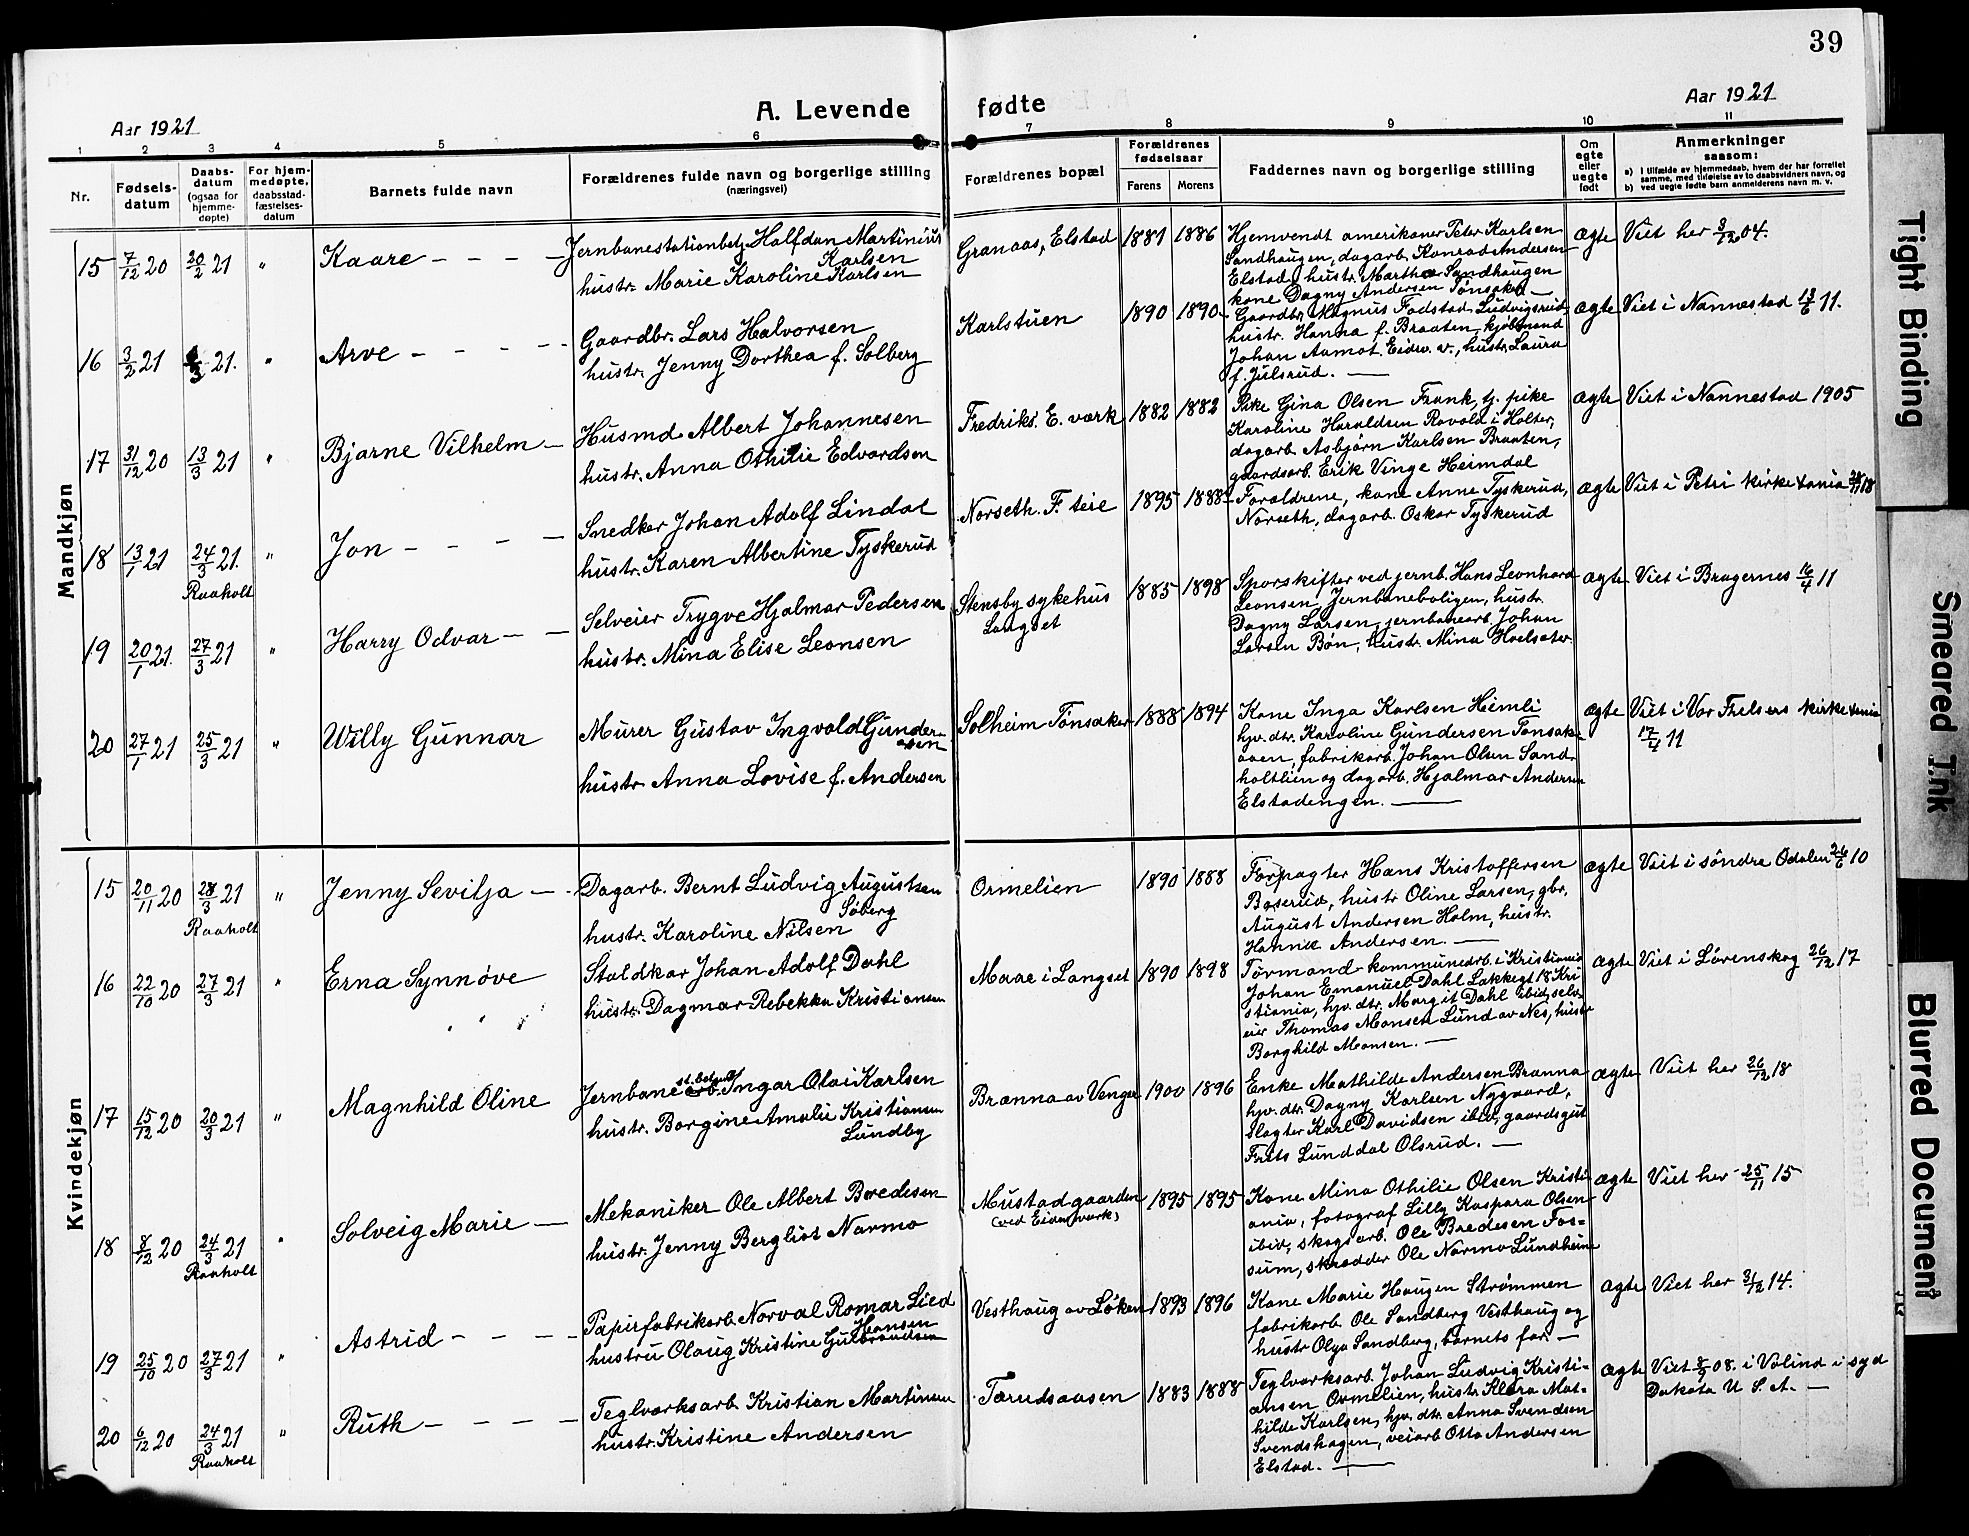 39
A. Levende fødte
Aar 1921
Aar 1921
1 2 3 4 5 6 7 8 9 10 11
Nr.
Fødsels-
datum
Daabs-
datum
(ogsaa for
hjemme-
døpte)
For hjem-
medøpte,
daabsstad-
fæstelses-
datum
Barnets fulde navn
Forældrenes fulde navn og borgerlige stilling
(næringsvei)
Forældrenes bopæl
Forældrenes
fødselsaar
Farens Morens
Faddernes navn og borgerlige stilling
Om
egte
eller
uegte
født
Anmerkninger
saasom:
a) I tilfælde av hjemmedaab, hvem der har forrettet
samme, med tilføielse av to daabsvidners navn, og
b) ved uegte fødte barn anmelderens navn m. v.
Mandkjøn
15 7/12 20 20/2 21 " Kaare
Jernbanestationbetj. Halfdan Martinius
Karlsen
hustr. Marie Karoline Karlsen
Granaas, Elstad 1881 1886
Hjemvendt amerikaner Peter Karlsen
Sandhaugen, dagarb. Konrad Andersen
Elstad, hustr. Martha Sandhaugen
kone Dagny Andersen Tønsaker
ægte Viet her 3/12 04.
16 3/2 21 /3 21. " Arve
Gaardbr. Lars Halvorsen
hustr. Jenny Dorthea f. Solberg
Karlstuen 1890 1890
Gaardbr. Magnus Fodstad Ludvigsrud,
hustr. Hanna f. Braaten, kjøbmand
Johan Aamot. Eidsv. v., hustr. Laura
f. Julsrud.
ægte Viet i Nannestad 13/6 11.
17 31/12 20 13/3 21 " Bjarne Vilhelm
Husmd. Albert Johannesen
hustr. Anna Othilie Edvardsen
Fredriks. E. værk 1882 1882
Pike Gina Olsen Frank, tj. pike
Karoline Haraldsen Rovold i Holter,
dagarb. Asbjørn Karlsen Braaten,
gaardsarb. Erik Vinge Heimdal
ægte Viet i Nannestad 1905
18 13/1 21 24/3 21. " Jon
Raaholt
Snedker Johan Adolf Lindal
hustr. Karen Albertine Tyskerud
Norseth. F. teie 1895 1888
Forældrene, kone Anne Tyskerud,
Norseth, dagarb. Oskar Tyskerud
ægte Viet i Petri kirke Xania /11 18
19 20/1 21. 27/3 21 " Harry Odvar
Selveier Trygve Hjalmar Pedersen
hustr. Mina Elise Leonsen
Stensby sykehus
Langset
1885 1898
Sporskifter ved jernb. Hans Leonhard
Leonsen Jernbaneboligen, hustr.
Dagny Larsen, jernbanearb. Johan
Larsen Bøn, hustr. Mina Hoelsæter
ægte Viet i Bragernes 16/4 11
20 27/1 21 25/3 21 " Willy Gunnar
Murer Gustav Ingvald Gunder-
sen
hustr. Anna Lovise f. Andersen
Solheim Tønsaker 1888 1894
Kone Inga Karlsen Heimli
hjv. dtr. Karoline Gundersen Tønsak-
aaen, fabrikarb. Johan Olsen Sand-
holtlien og dagarb. Hjalmar Andersen
Elstadengen.
ægte Viet i Vor Frelsers kirke Xania
17/4 11
Kvindekjøn
15 20/11 20 28/3 21 " Jenny Sevilja
Raaholt
Dagarb. Bernt Ludvig Augustsen
Søberg
hustr. Karoline Nilsen
Ormelien 1890 1888
Forpagter Hans Kristoffersen
Baserud, hustr Oline Larsen, gbr.
August Andersen Holm, hustr.
Hanna Andersen.
ægte Viet i søndre Odalen 26/6 10
16 22/10 20 27/3 21 " Erna Synnøve
Staldkar Johan Adolf Dahl
hustr. Dagmar Rebekka Kristiansen
Maae i Langset 1890 1898
Formand kommunearb. i Kristiania
Johan Emanuel Dahl Lakkegt 18 Kri-
stiania, hjv. dtr. Margit Dahl ibid, selv-
eier Thomas Monsen Lund av Nes, hustr
Borghild Monsen.
ægte Viet i Lørenskog 26/12 17
17 15/12 20 20/3 21 " Magnhild Oline
Jernbane Ingar Olai Karlsen
hustr. Borgine Amalie Kristiansen
Lundby
Brænna av Venger 1900 1896
Enke Mathilde Andersen Brænna
hjv. dtr. Dagny Karlsen Nygaard,
slagter Karl Davidsen ibid, gaardsgut
Frits Lunddal Olsrud.
ægte Viet her 26/12 18
18 8/12 20 24/3 21 " Solveig Marie
Raaholt
Mekaniker Ole Albert Bredesen
hustr. Jenny Bergliot Narmo
Mustadgaarden
(ved Eidsv. værk)
1895 1895
Kone Mina Othilie Olsen Kristi
ania, fotograf Lilly Kaspara Olsen
ibid, skogsarb. Ole Bredesen Fos-
sum, skrædder Ole Narmo Lundheim
ægte Viet her 25/11 15
19 25/10 20 27/3 21 " Astrid
Papirfabrikarb. Norval Romar Lied
Hansen
hustru Olaug Kristine Gulbrandsen
Vesthaug av Løken 1893 1896
Kone Marie Haugen Strømmen
fabrikarb. Ole Sandberg Vesthaug og
hustr Olga Sandberg, barnets far.
ægte Viet her 31/12 14.
20 6/12 20 24/3 21 " Ruth
Raaholt
Teglverksarb. Kristian Martinsen
hustr. Kristine Andersen
Tærudsaasen 1883 1888
Teglværksarb. Johan Ludvig Kristi-
ansen Ormelien, hustr. Klara Mat-
hilde Karlsen, hjv. dtr. Anna Svendsen
Svendshagen, veiarb Otto Andersen
Elstad.
ægte Viet 8/9 08. i Volind i syd
Dakota U. S. A.
Tight Binding
Smeared Ink
Blurred Document